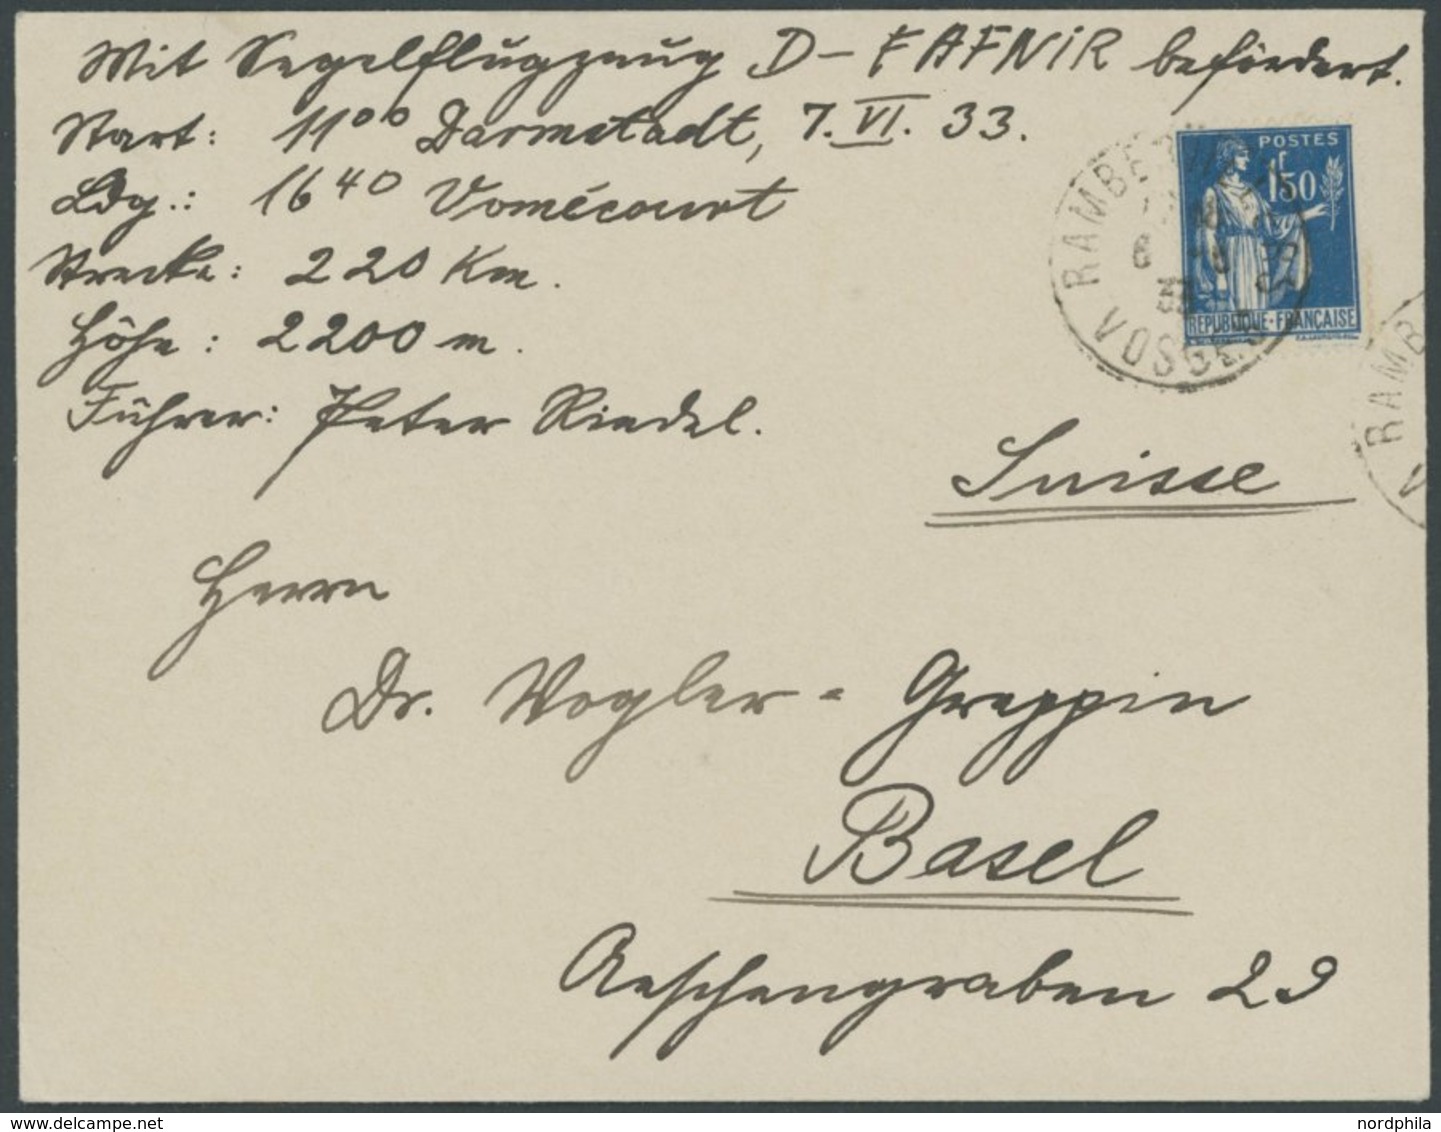 Mit Segelflugzeug D-FAFNiR befördert.
Start: 11⁰⁰ Darmstadt, 7. VI. 33.
Ldg.: 16⁴⁰ Vomécourt
Strecke: 220 Km.
Höhe: 2200 m.
Führer: Peter Riedel.
POSTES
1F50
REPUBLIQUE-FRANÇAISE
VOSGES
RAMB
Suisse
Herrn
Dr. Vogler-Greppin
Basel
Aeschengraben 29
nordphila